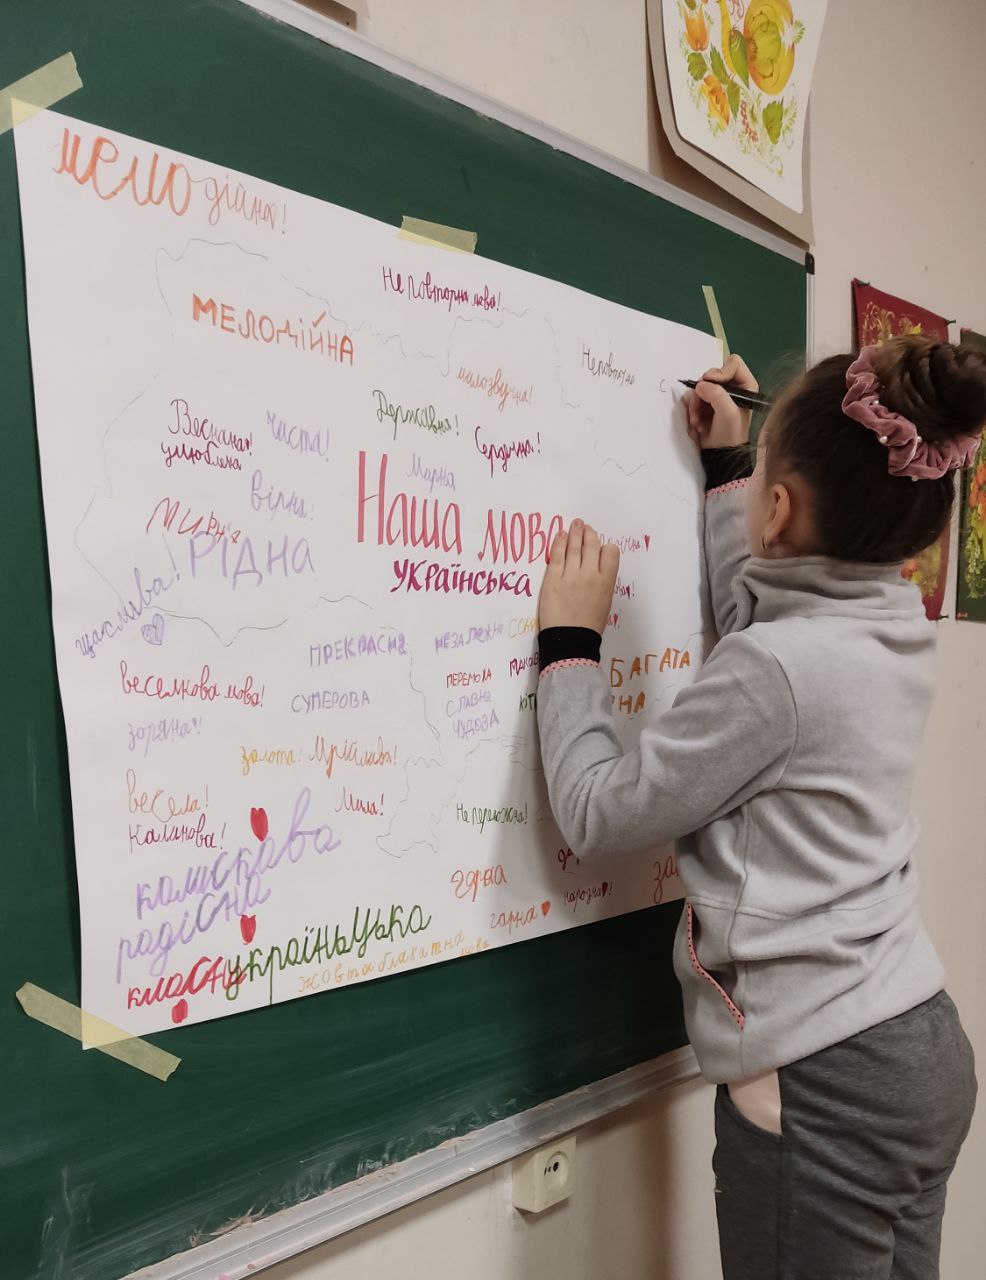 мелодійна!
Неповторна мова!
МЕЛОДІЙНА
Неповторна
милозвучна!
Державна!
Весняна!
улюблена
чиста!
Сердечна!
Мирна
вірна!
Наша мова
УКРАЇНСЬКА
Мирна
РІДНА
щаслива!
ПРЕКРАСНА
НЕЗАЛЕЖНО
БАГАТА
веселкова мова!
СУПЕРОВА
ПЕРЕМОГА
СЛАВНА
ЧУДОВА
зоряна!
золота!
Мрійлива!
весела!
Мила!
Калинова!
Непереможна!
колискова
гарна
радісна
народна!
гарна
класна
україньцька
жовтаблакитна
мова